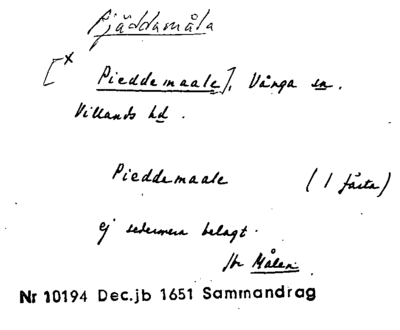 Pjäddamåla
[x Pieddemaale], Vånga sn.
Villands hd.
Pieddemaale (1 fästa)
ej sedermera belagt.
Jfr Målen
Nr 10194 Dec.jb 1651 Sammandrag